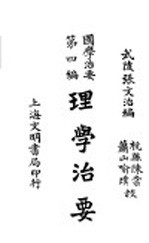 武陵張文治編
縣陳棠
蕭山喻璞
理學治要
國學治要
第四編
上海文明書局印行